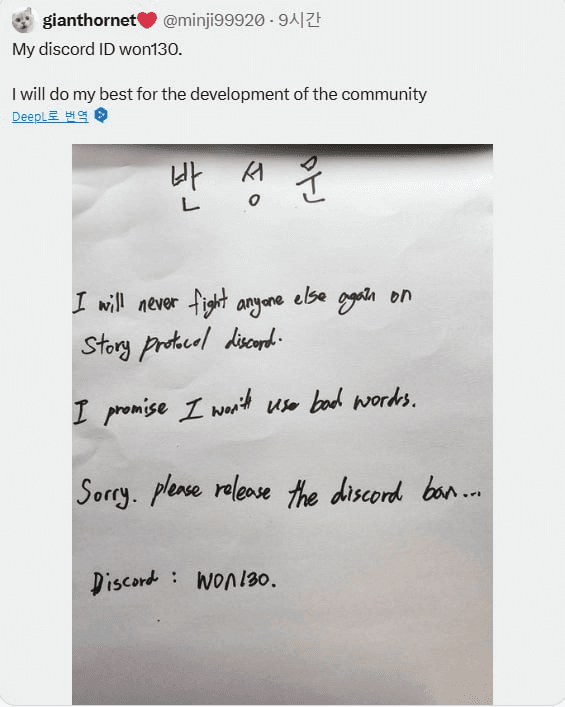 gianthornet❤️ @minji99920 · 9시간
My discord ID won130.
I will do my best for the development of the community
DeepL로 번역
반 성 문
I will never fight anyone else again on
Story protocol discord.
I promise I won't use bad words.
Sorry. please release the discord ban...
Discord : won130.